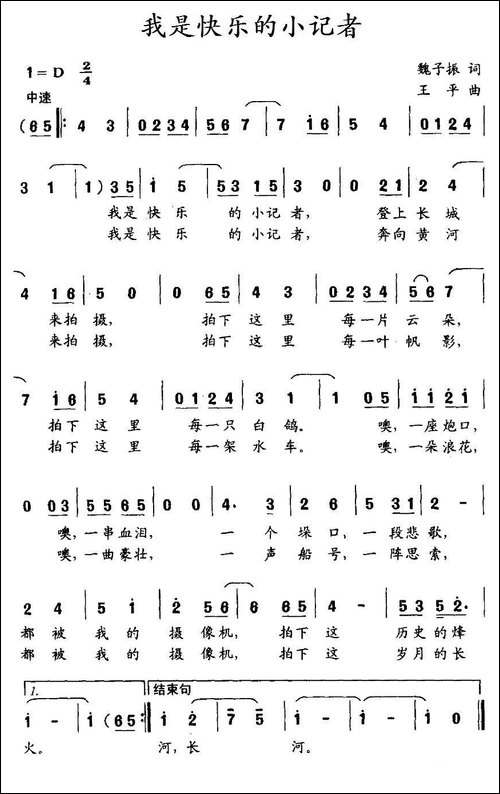 我是快乐的小记者
1=D 2/4
魏子振 词
中速
王平 曲
(6 5 |: 4 3 | 0 2 3 4 | 5 6 7 | 7 1 6 | 5 4 | 0 1 2 4 |
3 1 | 1) 3 5 | 1 5 | 5 3 1 5 | 3 0 | 0 2 1 | 2 4 |
我是 快 乐 的小记 者, 登上 长 城
我是 快 乐 的小记 者, 奔向 黄 河
4 1 6 | 5 0 | 0 6 5 | 4 3 | 0 2 3 4 | 5 6 7 |
来拍 摄, 拍下 这 里 每一片 云 朵,
来拍 摄, 拍下 这 里 每一叶 帆 影,
7 1 6 | 5 4 | 0 1 2 4 | 3 1 | 1 0 5 | 1 1 2 1 |
拍下 这 里 每一只 白 鸽。 噢, 一座炮口,
拍下 这 里 每一架 水 车。 噢, 一朵浪花,
0 0 3 | 5 5 6 5 | 0 0 | 4. 3 | 2 6 | 5 3 1 | 2 - |
噢, 一串血泪, 一 个 垛 口, 一段悲 歌,
噢, 一曲豪壮, 一 声 船 号, 一阵思 索,
2 4 | 5 1 | 2 5 6 | 6 0 | 5 6 5 | 4 - | 5 3 5 2. |
都 被 我 的 摄 像机, 拍下 这 历史的烽
都 被 我 的 摄 像机, 拍下 这 岁月的长
1. 结束句
1 - | 1 (6 5 :| 1 2 | 7 5 | 1 - | 1 - | 1 0 ‖
火。 河, 长 河。